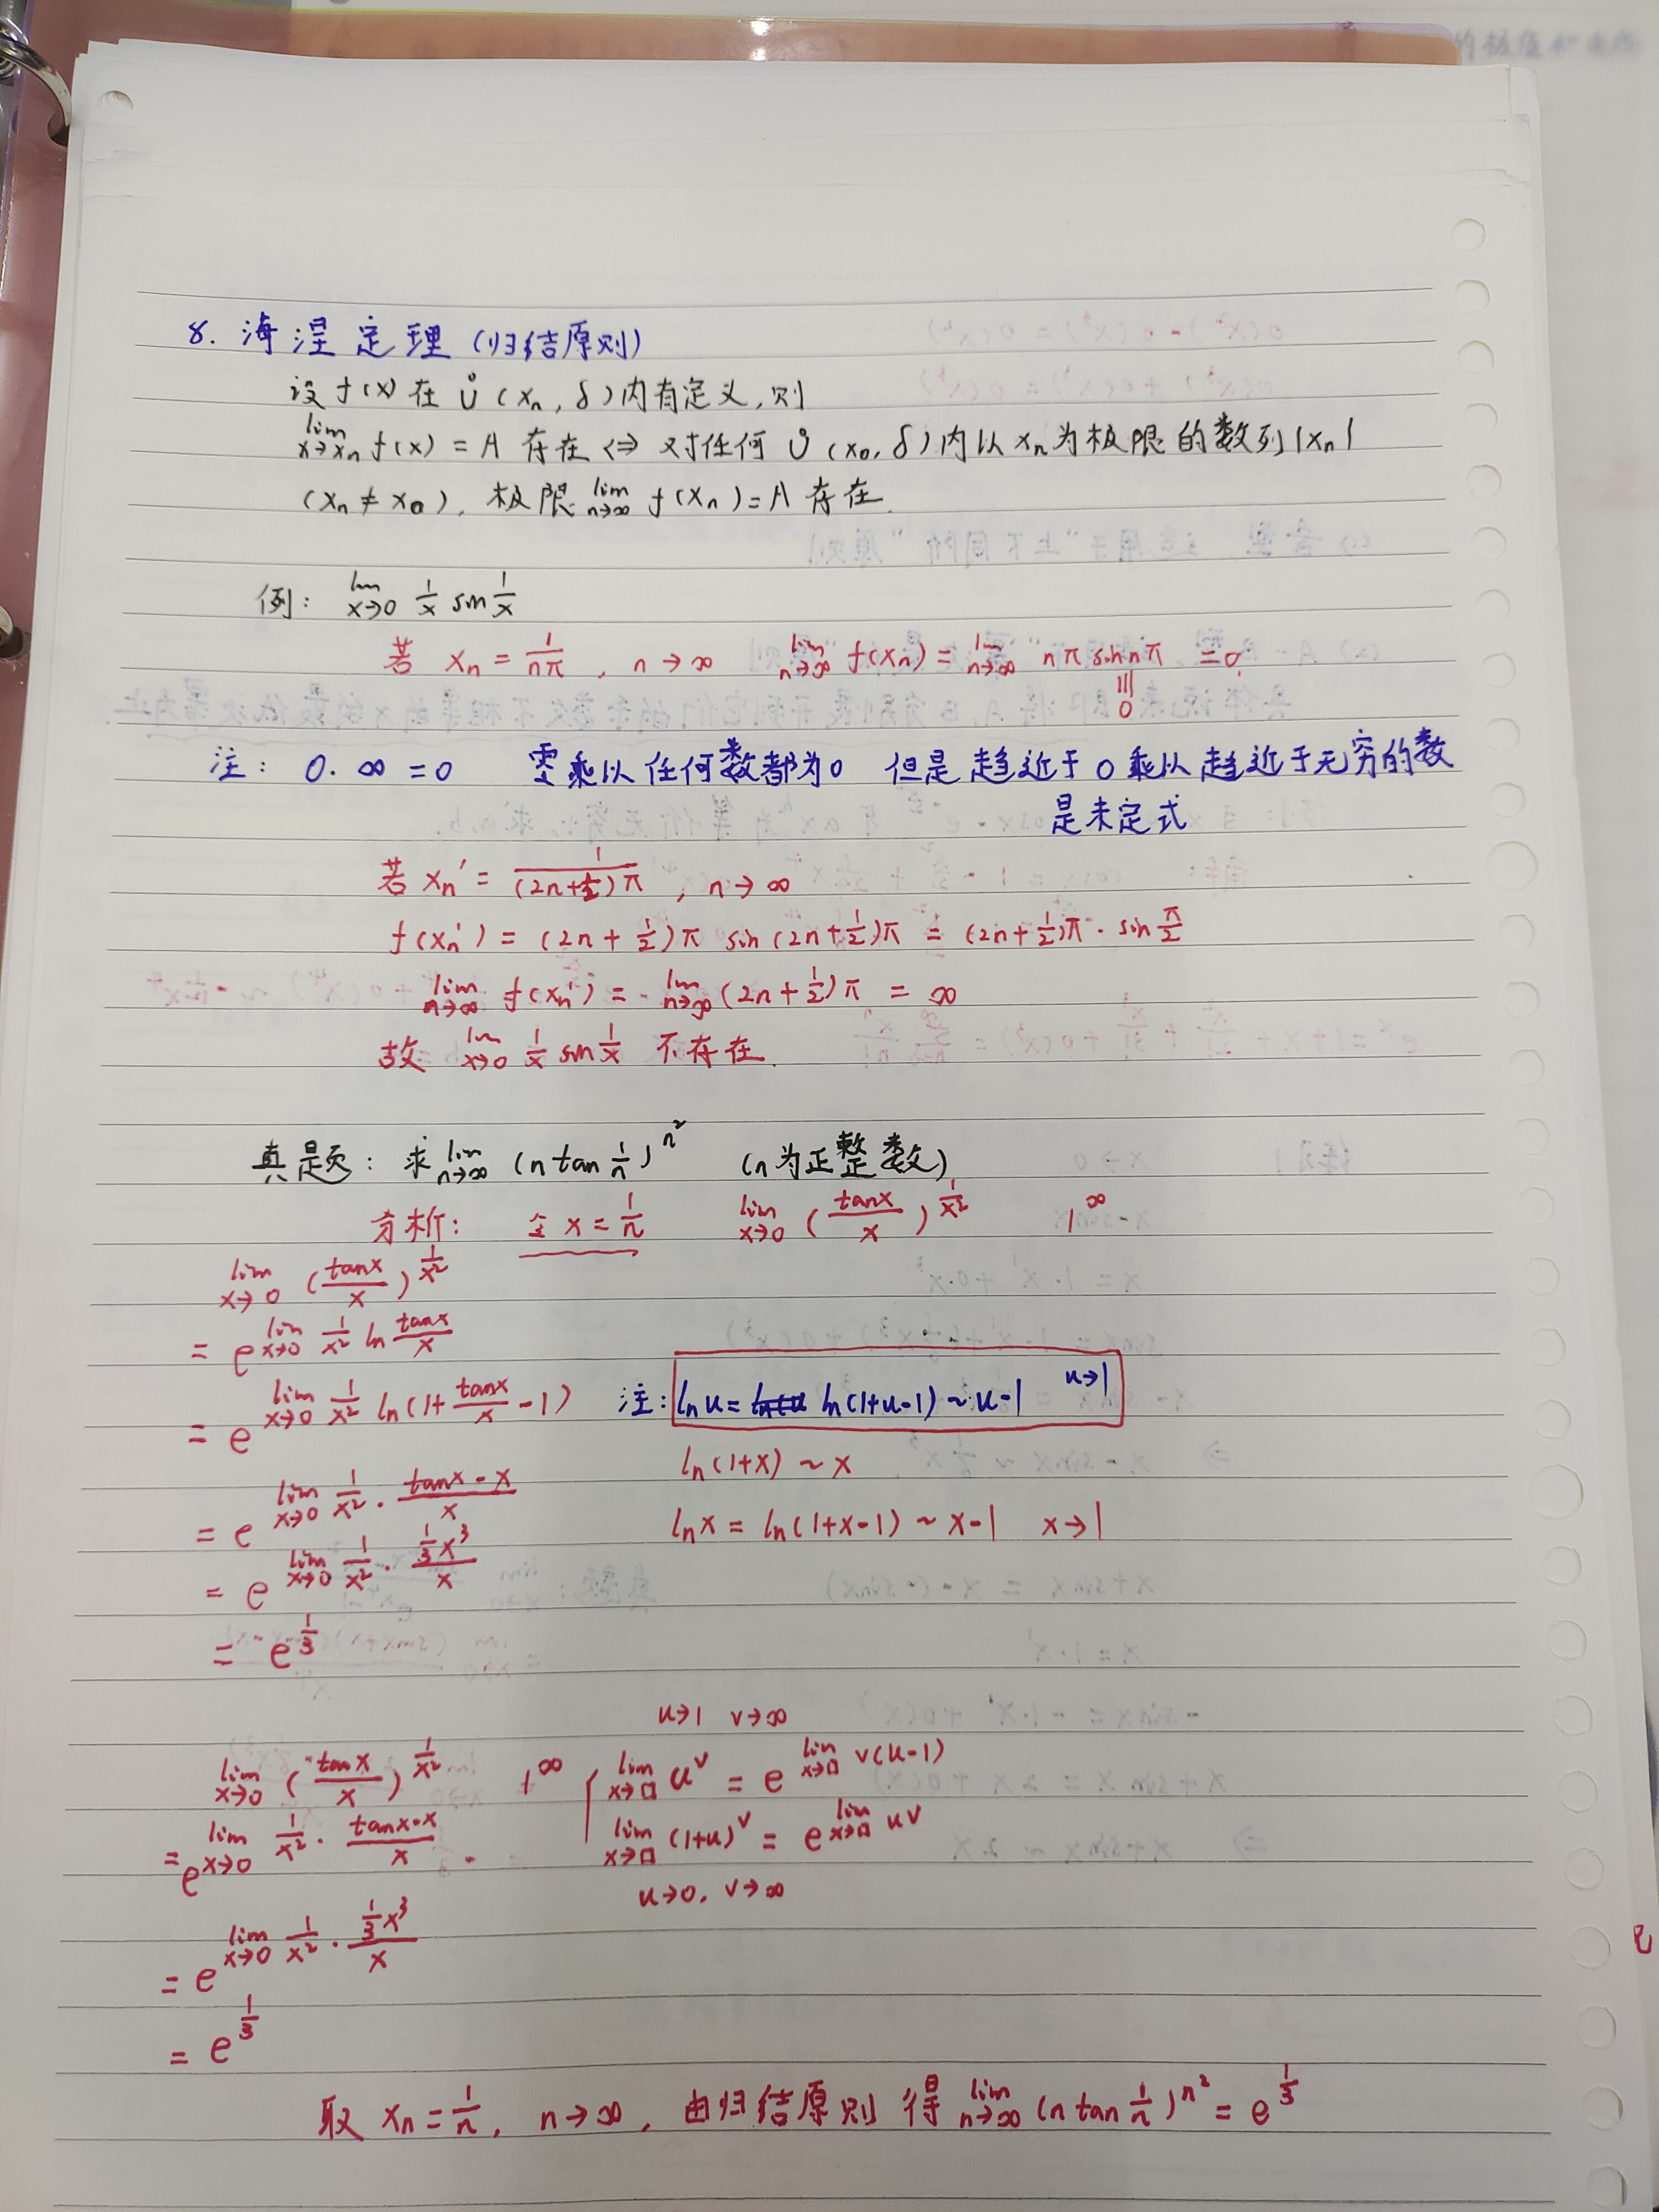 8. 海涅定理 (归结原则)
设 f(x) 在 Ů (xₙ, δ) 内有定义, 则
lim x→xₙ f(x) = A 存在 ⇔ 对任何 Ů (x₀, δ) 内以 xₙ 为极限的数列 {xₙ}
(xₙ ≠ x₀), 极限 lim n→∞ f(xₙ) = A 存在.
例: lim x→0 1/x sin 1/x
若 xₙ = 1/(nπ), n→∞ lim n→∞ f(xₙ) = lim n→∞ nπ sin nπ = 0.
≡
0
注: 0·∞ = 0 零乘以任何数都为0 但是趋近于0乘以趋近于无穷的数
是未定式
若 xₙ' = 1/((2n+1/2)π), n→∞
f(xₙ') = (2n+1/2)π sin(2n+1/2)π = (2n+1/2)π · sin π/2
lim n→∞ f(xₙ') = lim n→∞ (2n+1/2)π = ∞
故 lim x→0 1/x sin 1/x 不存在.
真题: 求 lim n→∞ (n tan 1/n)^(n²) (n为正整数)
分析: 令 x = 1/n lim x→0 (tanx/x)^(1/x²) 1^∞
lim x→0 (tanx/x)^(1/x²)
= e^(lim x→0 1/x² ln tanx/x)
= e^(lim x→0 1/x² ln(1+tanx/x-1)) 注: ln u = ln(1+u-1) ~ u-1 u→1
ln(1+x) ~ x
= e^(lim x→0 1/x² · (tanx-x)/x) ln x = ln(1+x-1) ~ x-1 x→1
= e^(lim x→0 1/x² · (1/3 x³)/x)
= e^(1/3)
u→1 v→∞
lim x→0 (tanx/x)^(1/x²) 1^∞ { lim x→□ u^v = e^(lim x→□ v(u-1))
= e^(lim x→0 1/x² · (tanx-x)/x) lim x→□ (1+u)^v = e^(lim x→□ uv)
u→0, v→∞
= e^(lim x→0 1/x² · (1/3 x³)/x)
= e^(1/3)
取 xₙ = 1/n, n→∞, 由归结原则 得 lim n→∞ (n tan 1/n)^(n²) = e^(1/3)